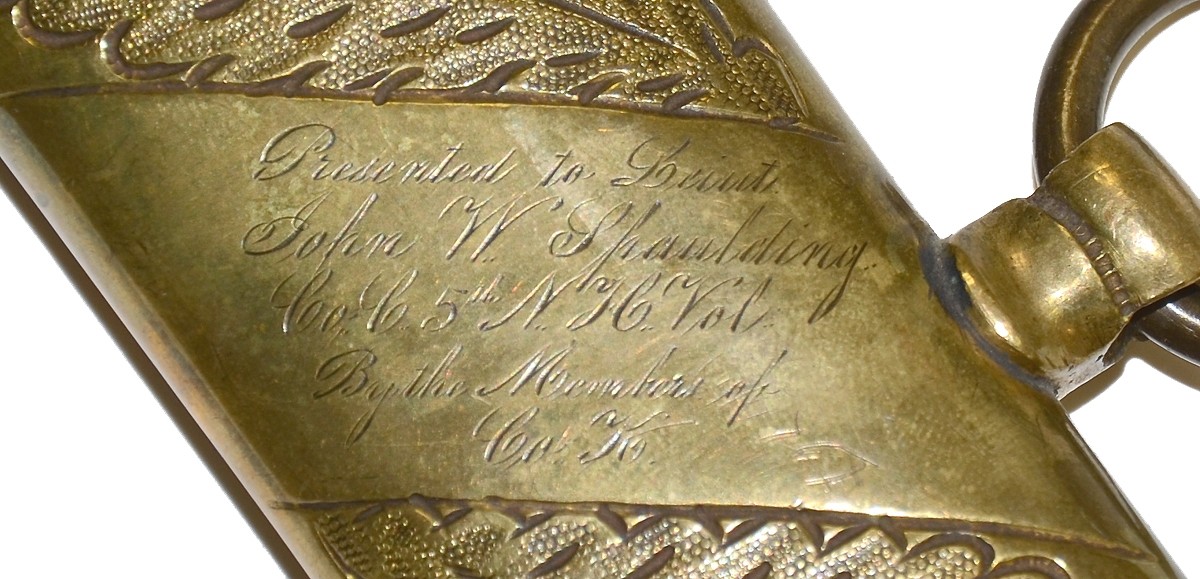 Presented to Leiut.
John W. Spaulding
Co. C. 5th N. H. Vol.
By the Members of
Co. K.